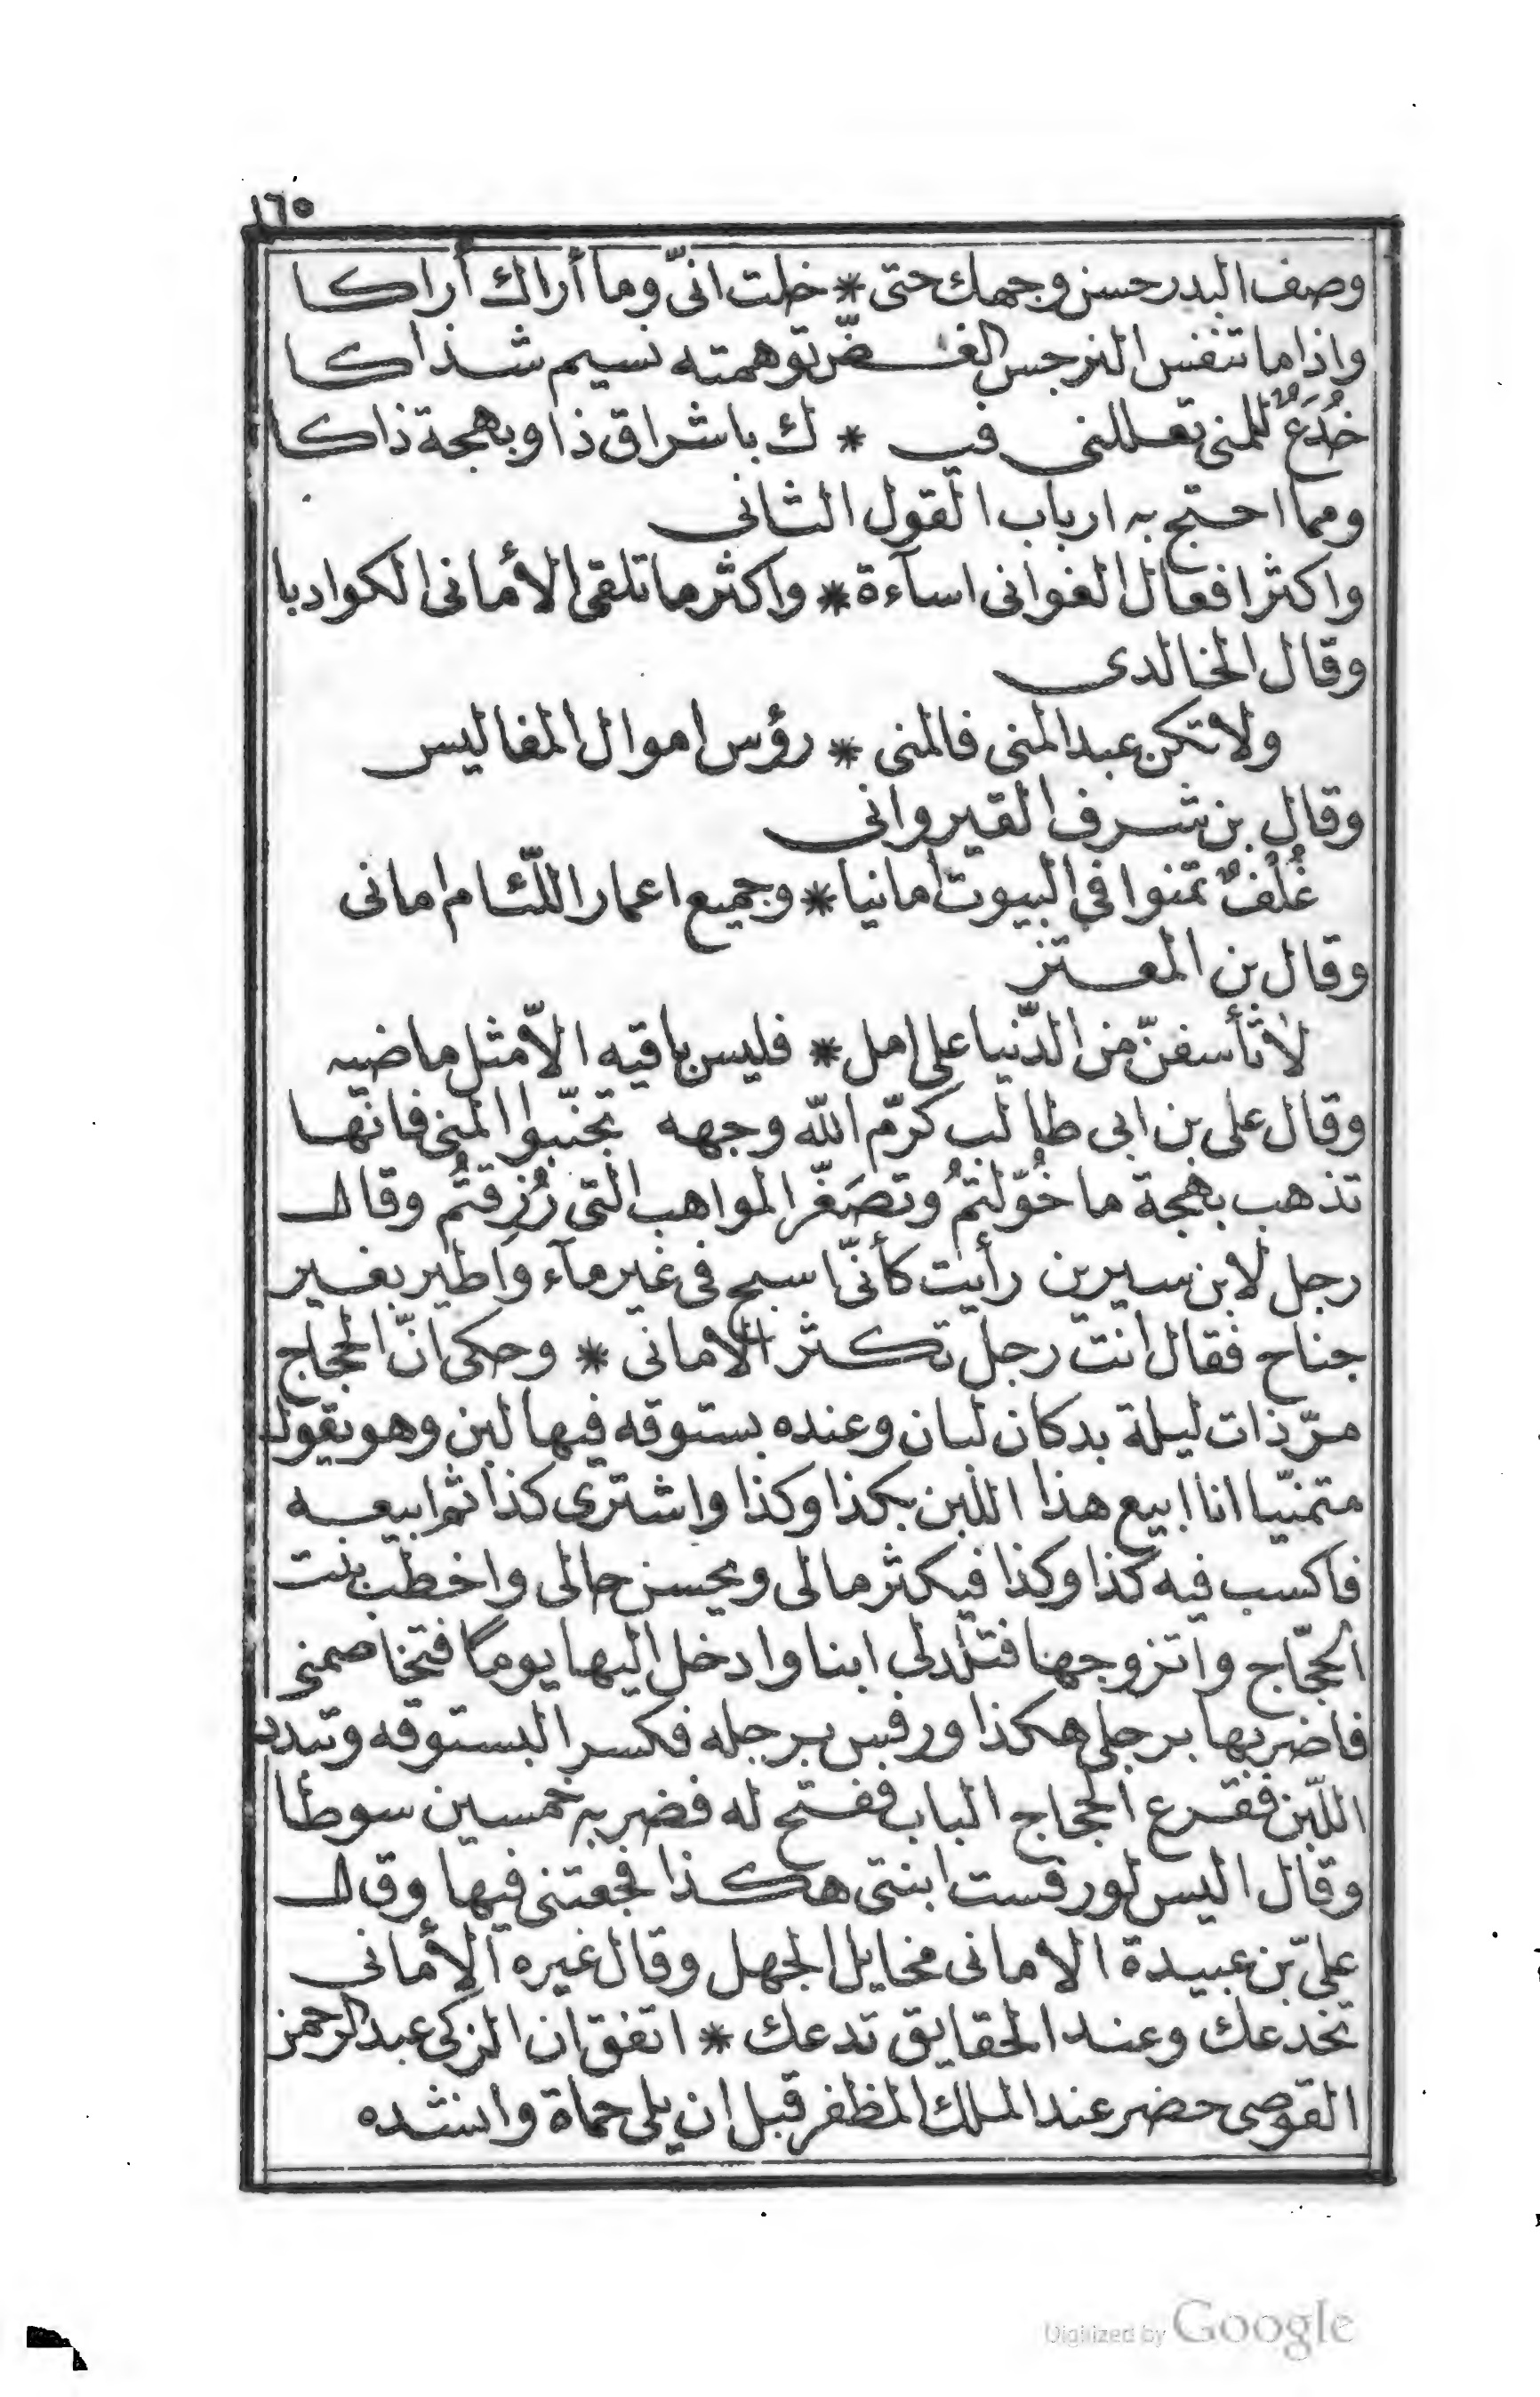 ١٦٥
وصف البدر حسن وجهك حتى * خلت انّى وما أراك أراكا
واذا ما تنفس النرجس الغـــضّ توهمته نسيم شذاكا
خُدَعٌ للمنى تعللنى فيـ * ـك باشراق ذا وبهجة ذاكا
ومما احتج به ارباب القول الثانى
واكثر افعال الغوانى اسآءة * واكثر ما تلقى الأمانى الكوادبا
وقال الخالدى
ولا تكن عبد المنى فالمنى * رؤس اموال المفاليس
وقال بن شرف القيروانى
غُلُفٌ تمنوا فى البيوت امانيا * وجميع اعمار اللّئام امانى
وقال بن المعتز
لا تأسفنّ من الدّنيا على امل * فليس باقيه الاّ مثل ماضيه
وقال على بن ابى طالب كرّم الله وجهه تجنّبوا المنى فانّها
تذهب بهجة ما خُوّلتمُ وتصَغّر المواهب التى رُزِقتُم وقال
رجل لابن سيرين رأيت كأنّى اسبح فى غير مآء واطير بغير
جناح فقال انت رجل تكثر الامانى * وحكى انّ الحجاج
مرّ ذات ليلة بدكان لبان وعنده بستوقه فيها لبن وهو يقول
متمنيّا انا ابيع هذا اللبن بكذا وكذا واشترى كذا ثم ابيعه
فاكسب فيه كذا وكذا فيكثر مالى ويحسن حالى واخطب بنت
الحجّاج واتزوجها فتلدلى ابنا وادخل اليها يوما فتخاصمنى
فاضربها برجلى هكذا ورفس برجله فكسر البستوقه وتبدد
اللّبن فقرع الحجاج الباب ففتح له فضربه خمسين سوطا
وقال اليس لو رفست ابنتى هكذا فجعتنى فيها وقال
علىّ بن عبيدة الامانى مخايل الجهل وقال غيره الأمانى
تخدعك وعند الحقايق تدعك * اتفق ان الزكى عبد الرحمن
القوصى حضر عند الملك المظفر قبل ان يلى حماة وانشده
Digitized by Google